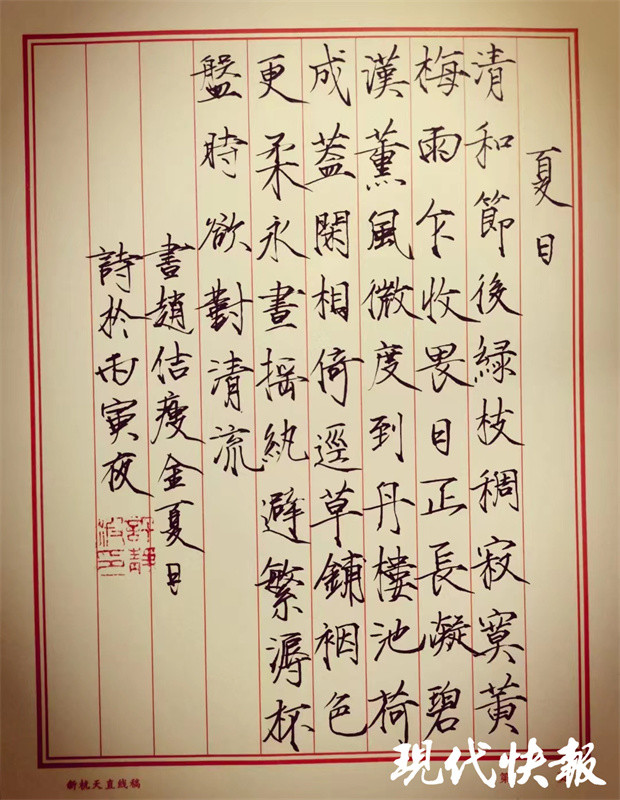 夏日
清和節後緑枝稠寂寞黃
梅雨乍收畏日正長凝碧
漢薰風微度到丹樓池荷
成蓋閑相倚逕草鋪裀色
更柔永晝搖紈避繁溽杯
盤時欲對清流
書趙佶瘦金夏日
詩於丙寅夜
新杭天直线稿
第
現代快報